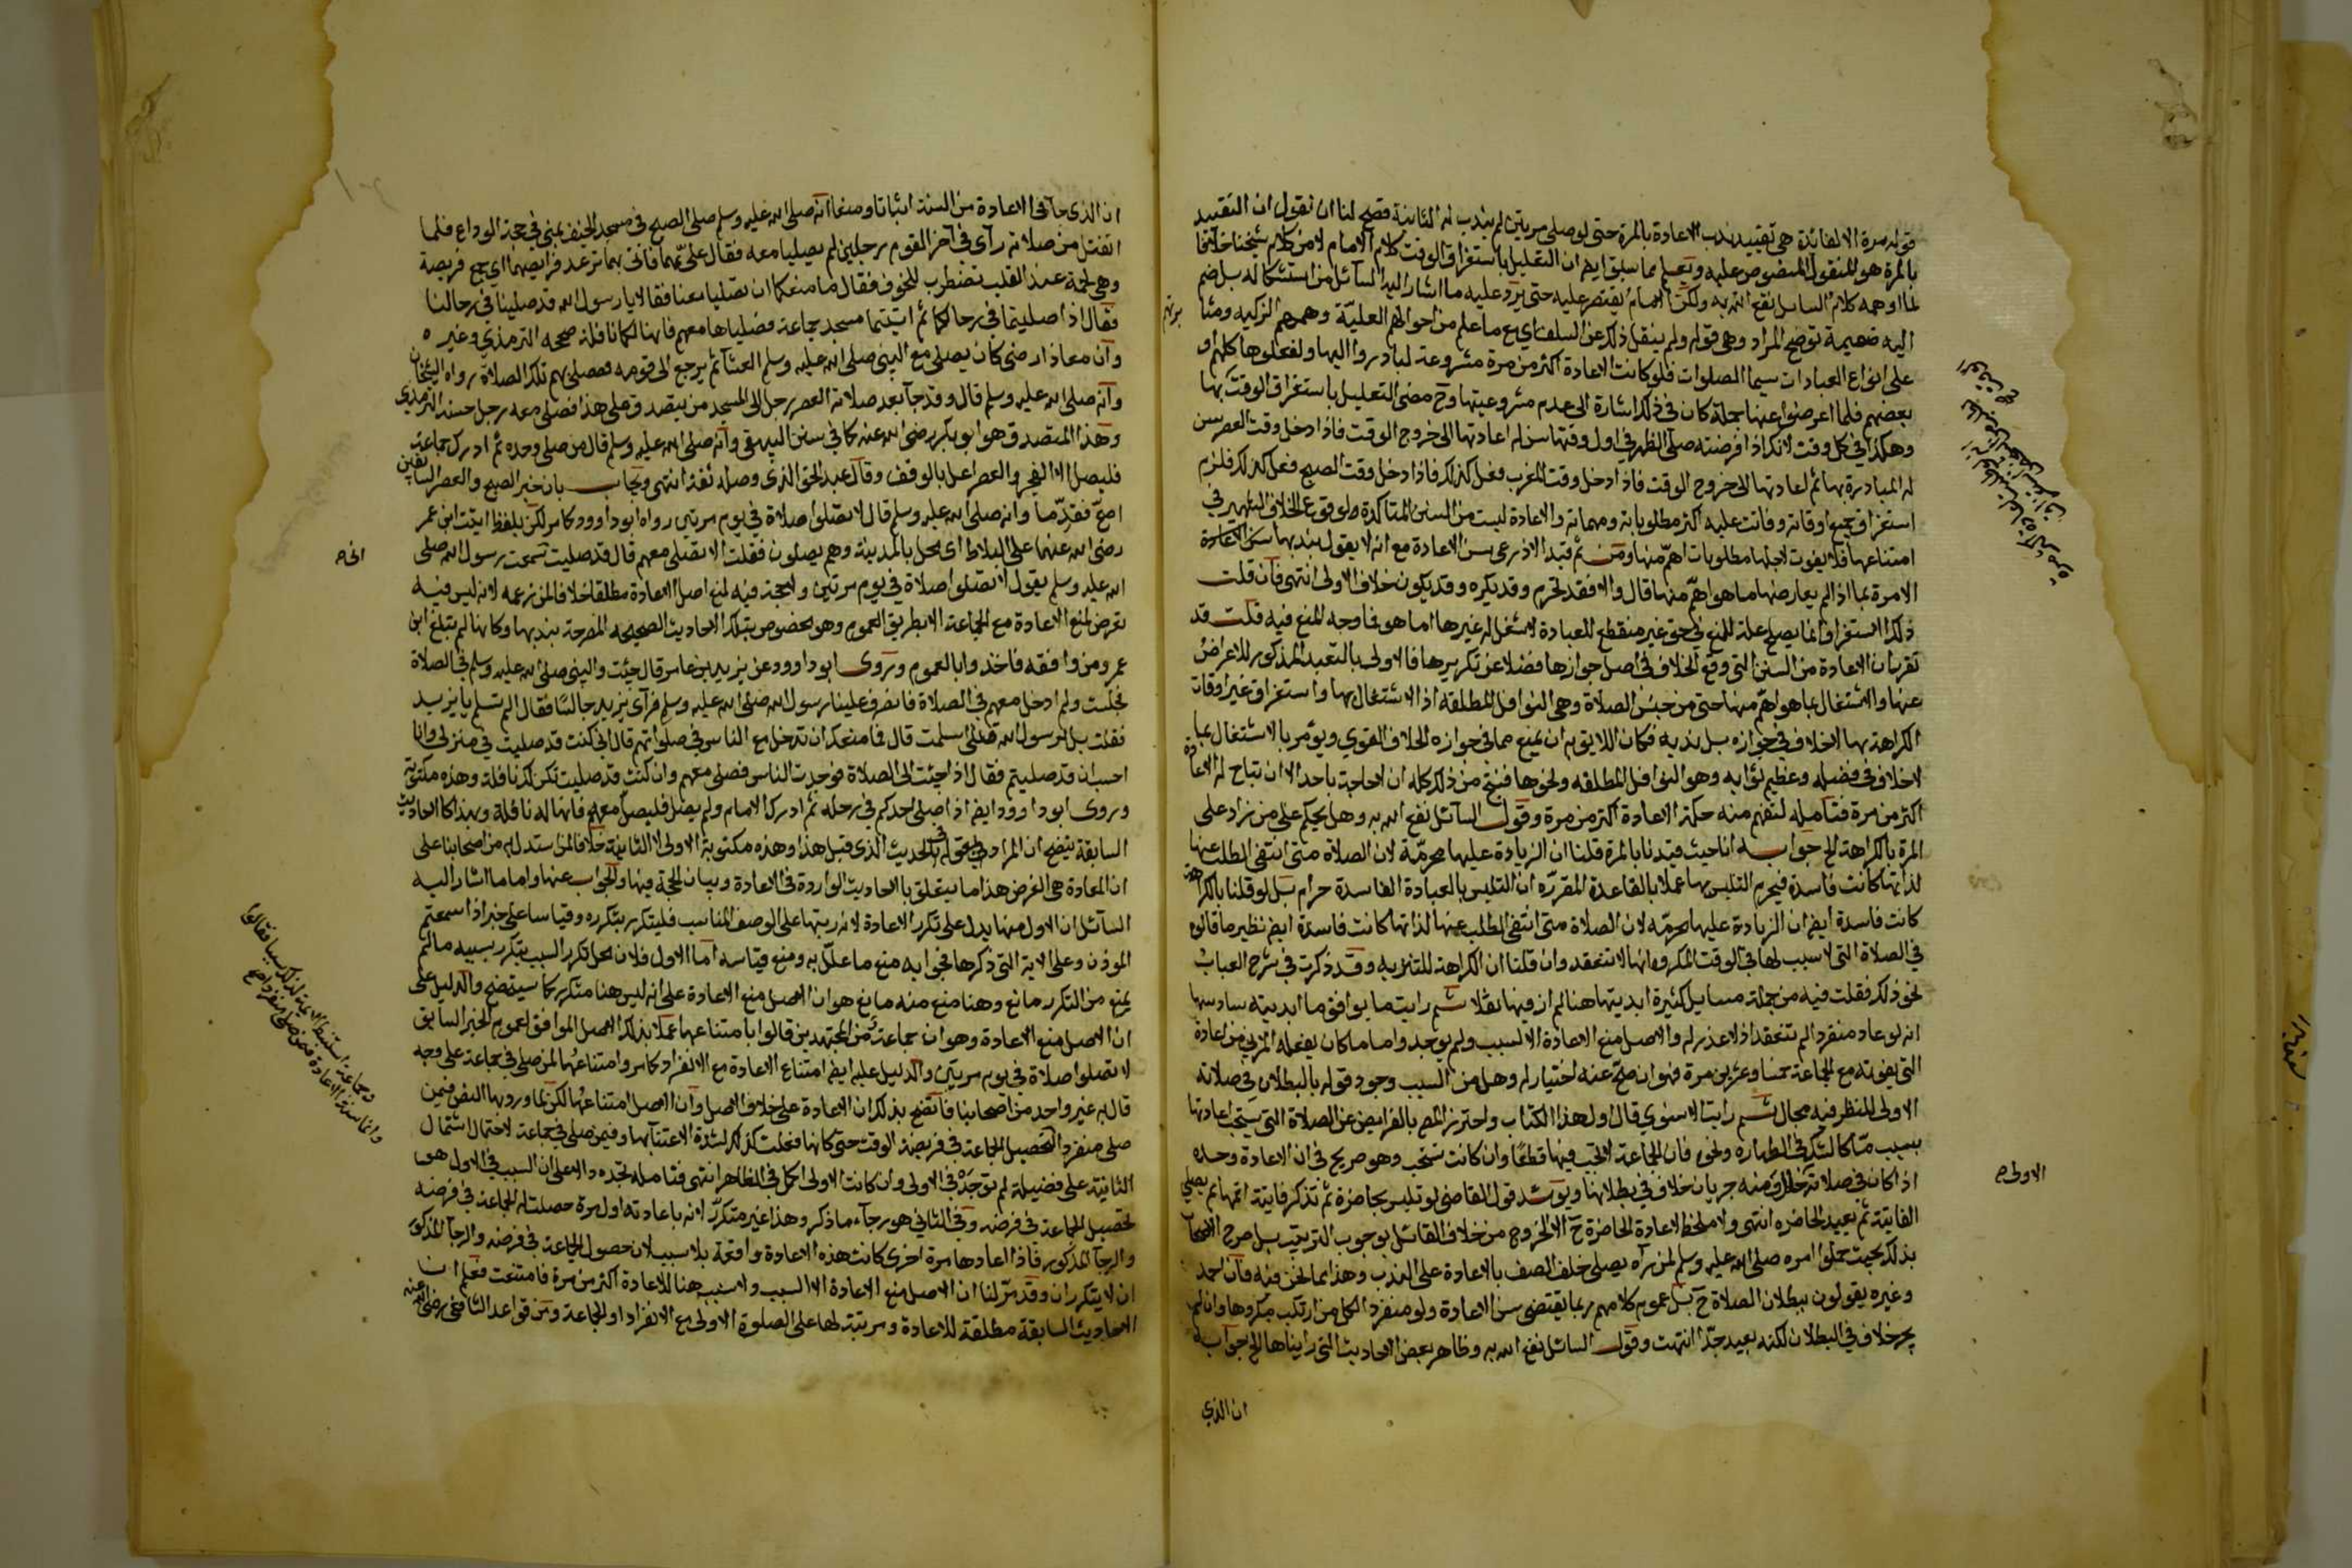 قوله مرة الا لفائدة هي تقييد ندب الاعادة بالمرة حتى لو صلى مرتين لم يندب له الثانية فصح لنا ان نقول ان التقييد
بالمرة هو المنقول المنصوص عليه ويعلم مما سبق ايضا ان التعليل باستغراق الوقت كلام الامام لا من كلام شيخنا خلافا
لما اوهمه كلام السائل نفع الله به ولكن الامام لم يقتصر عليه حتى يرد عليه ما اشار اليه السائل من استشكاله بل ضم
اليه ضميمة توضح المراد وهي قوله ولم ينقل ذلك عن السلف اي مع ما علم من احوالهم العلية وهممهم الزكيه
على انواع العبادات سيما الصلوات فلو كانت الاعادة اكثر من مرة مشروعة لبادروا اليها ولفعلوها كلهم او
بعضهم فلما اعرضوا عنها جملة كان في ذلك اشارة الى عدم مشروعيتها وح مضى التعليل باستغراق الوقت بها
وهكذا في كل وقت لانك اذا فرضته صلى الظهر في اول وقتها سن له اعادتها الى خروج الوقت فاذا دخل وقت العصر سن
له المبادرة بها ثم اعادتها الى خروج الوقت فاذا دخل وقت المغرب فعل كذلك فاذا دخل وقت الصبح فعل كذلك فلزم
استغراق جميع اوقاته وفاتت عليه اكثر مطلوباته ومهماته والاعادة ليست من السنن المتاكدة لوقوع الخلاف الشهير في
امتناعها فلا يفوت لاجلها مطلوبات اهم منها ومن ثم قيد الاذرعي سن الاعادة مع انه لا يقول بندبها
الامرة بما اذا لم يعارضها ما هو اهم منها قال والا فقد تحرم وقد يكره وقد يكون خلاف الاولى انتهى فان قلت
ذلك الاستغراق انما يصلح علة للمنع في حق غير منقطع للعبادة لا شغل له غيرها اما هو فما وجه المنع فيه قلت قد
تقرر ان الاعادة من السنن التي وقع الخلاف في اصل جوازها فضلا عن تكريرها فالاولى بالتعبد المذكور الاعراض
عنها والاشتغال بما هو اهم منها حتى من جنس الصلاة وهي النوافل المطلقه اذ الاشتغال بها واستغراق غير اوقات
الكراهة بها لا خلاف في جوازه بل ندبه فكان اللايق به ان يمنع مما في جوازه الخلاف القوي ويؤمر بالاشتغال بما
لا خلاف في فضيلته وعظيم ثوابه وهو النوافل المطلقه ونحوها فنتج من ذلك كله ان لا حاجة باحد الى ان تباح له الاعادة
اكثر من مرة فتامله لتفهم منه حكمة الاعادة اكثر من مرة وقول السائل نفع الله به وهل يحكم على من زاد على
المرة بالكراهة الخ جوابه انا حيث قيدنا بالمرة قلنا ان الزيادة عليها محرمة لان الصلاة متى انتفى الطلب عنها
لذاتها كانت فاسدة فيحرم التلبس بها عملا بالقاعدة المقرره ان التلبس بالعبادة الفاسدة حرام بل لو قلنا بالكراهة
كانت فاسدة ايضا ان الزيادة عليها محرمه لان الصلاة متى انتفى الطلب عنها لذاتها كانت فاسدة ايضا نظير ما قالوه
في الصلاة التي لا سبب لها في الوقت المكروه انها لا تنعقد وان قلنا ان الكراهة للتنزيه وقد ذكرت في شرح العباب
نحو ذلك فقلت فيه من جملة مسايل كثيرة ابديتها هنا لم ار فيها نقلا ثم رايت ما يوافق ما ابديته سادسها
انه لو عاد منفردا لم تنعقد اذ لا عذر له والاصل منع الاعادة الا لسبب ولم يوجد واما ما كان يفعله المزني من اعادة
التي تفوته مع الجماعة خمسا وعشرين مرة فهو ان صح عنه اختيار له وهل من السبب وجود قول بالبطلان في صلاته
الاولى للنظر فيه مجال ثم رايت الاسنوي قال اول هذا الكتاب واحترز المص بالفرايض عن الصلاة التي يستحب اعادتها
بسبب ما كالشك في الطهاره ونحوه فان الجماعة لا تجب فيها قطعا وان كانت تستحب وهو صريح في ان الاعادة وحده
اذا كان في صلاته خلل ومنه جريان خلاف في بطلانها ويؤيده قول القاضي لو تلبس بحاضرة ثم تذكر فايتة اتمها ثم يصلي
الفايتة ثم يعيد الحاضره انتهى ولا ملحظ لاعادة الحاضرة ح الا الخروج من خلاف القائل بوجوب الترتيب بل صرح
بذلك بحيث حملوا امره صلى الله عليه وسلم لمن رآه يصلي خلف الصف بالاعادة على الندب وهذا مما نحن فيه فان احمد
وغيره يقولون ببطلان الصلاة ح بل عموم كلامهم ربما يقتضي سن الاعادة ولو منفردا لكل من ارتكب مكروها وان لم
يجر خلاف في البطلان لكنه بعيد جدا انتهت وقول السائل نفع الله به وظاهر بعض الاحاديث التي رايناها الخ جوابه
ان الذي
الاولى صح
ان الذي جاء في الاعادة من السنة اثباتا ومنعا انه صلى الله عليه وسلم صلى الصبح في مسجد الخيف بمنى في حجة الوداع فلما
انفتل من صلاته رآى في آخر القوم رجلين لم يصليا معه فقال علي بهما فاتى بهما ترعد فرايصهما اي جمع فريصة
وهي لحمة عند القلب تضطرب للخوف فقال ما منعكما ان تصليا معنا فقالا يا رسول الله قد صلينا في رحالنا
فقال اذا صليتما في رحالكما ثم اتيتما مسجد جماعة فصلياها معهم فانها لكما نافلة صححه الترمذي وغيره
وان معاذا رضي كان يصلي مع النبي صلى الله عليه وسلم العشآ ثم يرجع الى قومه فيصلي بهم تلك الصلاة رواه الشيخان
وانه صلى الله عليه وسلم قال وقد جآ بعد صلاته العصر رجل الى المسجد من يتصدق على هذا فصلى معه رجل حسنه الترمذي
وهذا المتصدق هو ابو بكر رضي الله عنه كما في سنن البيهقي وانه صلى الله عليه وسلم قال من صلى وحده ثم ادرك جماعة
فليصل الا الفجر والعصر اعل بالوقف وقال عبد الحق الذي وصله ثقة انتهى ويجاب بان خبر الصبح والعصر السابقين
اصح فقدما وانه صلى الله عليه وسلم قال لا تصلوا صلاة في يوم مرتين رواه ابو داوود كما مر لكن بلفظ اتيت ابن عمر
رضي الله عنهما على البلاط اي محل بالمدينة وهم يصلون فقلت الا تصلي معهم قال قد صليت سمعت رسول الله صلى
الله عليه وسلم يقول لا تصلوا صلاة في يوم مرتين ولا حجة فيه لمنع اصل الاعادة مطلقا خلافا لمن زعمه لانه ليس فيه
تعرض لمنع الاعادة مع الجماعة الا بطريق العموم وهو مخصوص بتلك الاحاديث الصحيحه المصرحة بندبها وكانها لم تبلغ ابن
عمر ومن وافقه فاخذوا بالعموم وروى ابو داوود عن يزيد بن عامر قال جئت والنبي صلى الله عليه وسلم في الصلاة
فجلست ولم ادخل معهم في الصلاة فانصرف علينا رسول الله صلى الله عليه وسلم فرآى يزيد جالسا فقال الم تسلم يا يزيد
فقلت بلى يرسول الله قد اسلمت قال فما منعك ان تدخل مع الناس في صلواتهم قال اني كنت قد صليت في منزلي وانا
احسب ان قد صليتم فقال اذا جئت الى الصلاة فوجدت الناس فصلي معهم وان كنت قد صليت تكن لك نافلة وهذه مكتوبة
وروى ابو داوود ايضا اذا صلى احدكم في رحله ثم ادرك الامام ولم يصل فليصل معهم فانها له نافلة وبهذا كالاحاديث
السابقة يتضح ان المراد بقوله في الحديث الذي قبل هذا وهذه مكتوبة الاولى لا الثانية خلافا لمن استدل به من اصحابنا على
ان المعادة هي الفرض هذا ما يتعلق بالاحاديث الواردة في الاعادة وبيان الحجة فيها والجواب عنها واما ما اشار اليه
السآئل ان الاول منها يدل على تكرر الاعادة لانه رتبها على الوصف المناسب فليتكرر بتكرره وقياسا على خبر اذا سمعتم
الموذن وعلى الاية التي ذكرها فجوابه منع ما علل به ومنع قياسه اما الاول فلان محل تكرر السبب بتكرر سببه ما لم
يمنع من التكرر مانع وهنا منع منه مانع هو ان الاصل منع الاعادة على انه ليس هنا متكرر كما سيتضح والدليل على
ان الاصل منع الاعادة وهو ان جماعة من المجتهدين قالوا بامتناعها عملا بذلك الاصل الموافق لعموم الخبر السابق
لا تصلوا صلاة في يوم مرتين والدليل عليه ايضا امتناع الاعادة مع الانفراد كما مر وامتناعها لمن صلى في جماعة على وجه
قال به غير واحد من اصحابنا فاتضح بذلك ان الاعادة على خلاف الاصل وان الاصل امتناعها لكن لما ورد بها النص فيمن
صلى منفردا لتحصيل الجماعة في فريضة الوقت حتى كانها فعلت كذلك لشدة الاعتنآ بها وفيمن صلى في جماعة لاحتمال اشتمال
الثانية على فضيلة لم توجد في الاولى وان كانت الاولى اكمل في الظاهر انتهى فتامله تجده دالا على ان السبب في الاول هو
تحصيل الجماعة في فرضه وفي الثاني هو رجآء ما ذكر وهذا غير متكرر لانه باعادته اول مرة حصلت له الجماعة في فرضه
والرجآ المذكور فاذا اعادها مرة اخرى كانت هذه الاعادة واقعة بلا سبب لان حصول الجماعة في فرضه والرجآ المذكور
ان لا يتكرران وقد مر لنا ان الاصل منع الاعادة الا لسبب ولا سبب هنا للاعادة اكثر من مرة فامتنعت فعلم ان
الاحاديث السابقة مطلقة للاعادة ومرتبة لها على الصلوة الاولى مع الانفراد او الجماعة ومن قواعد الشافعي رضي الله عنه